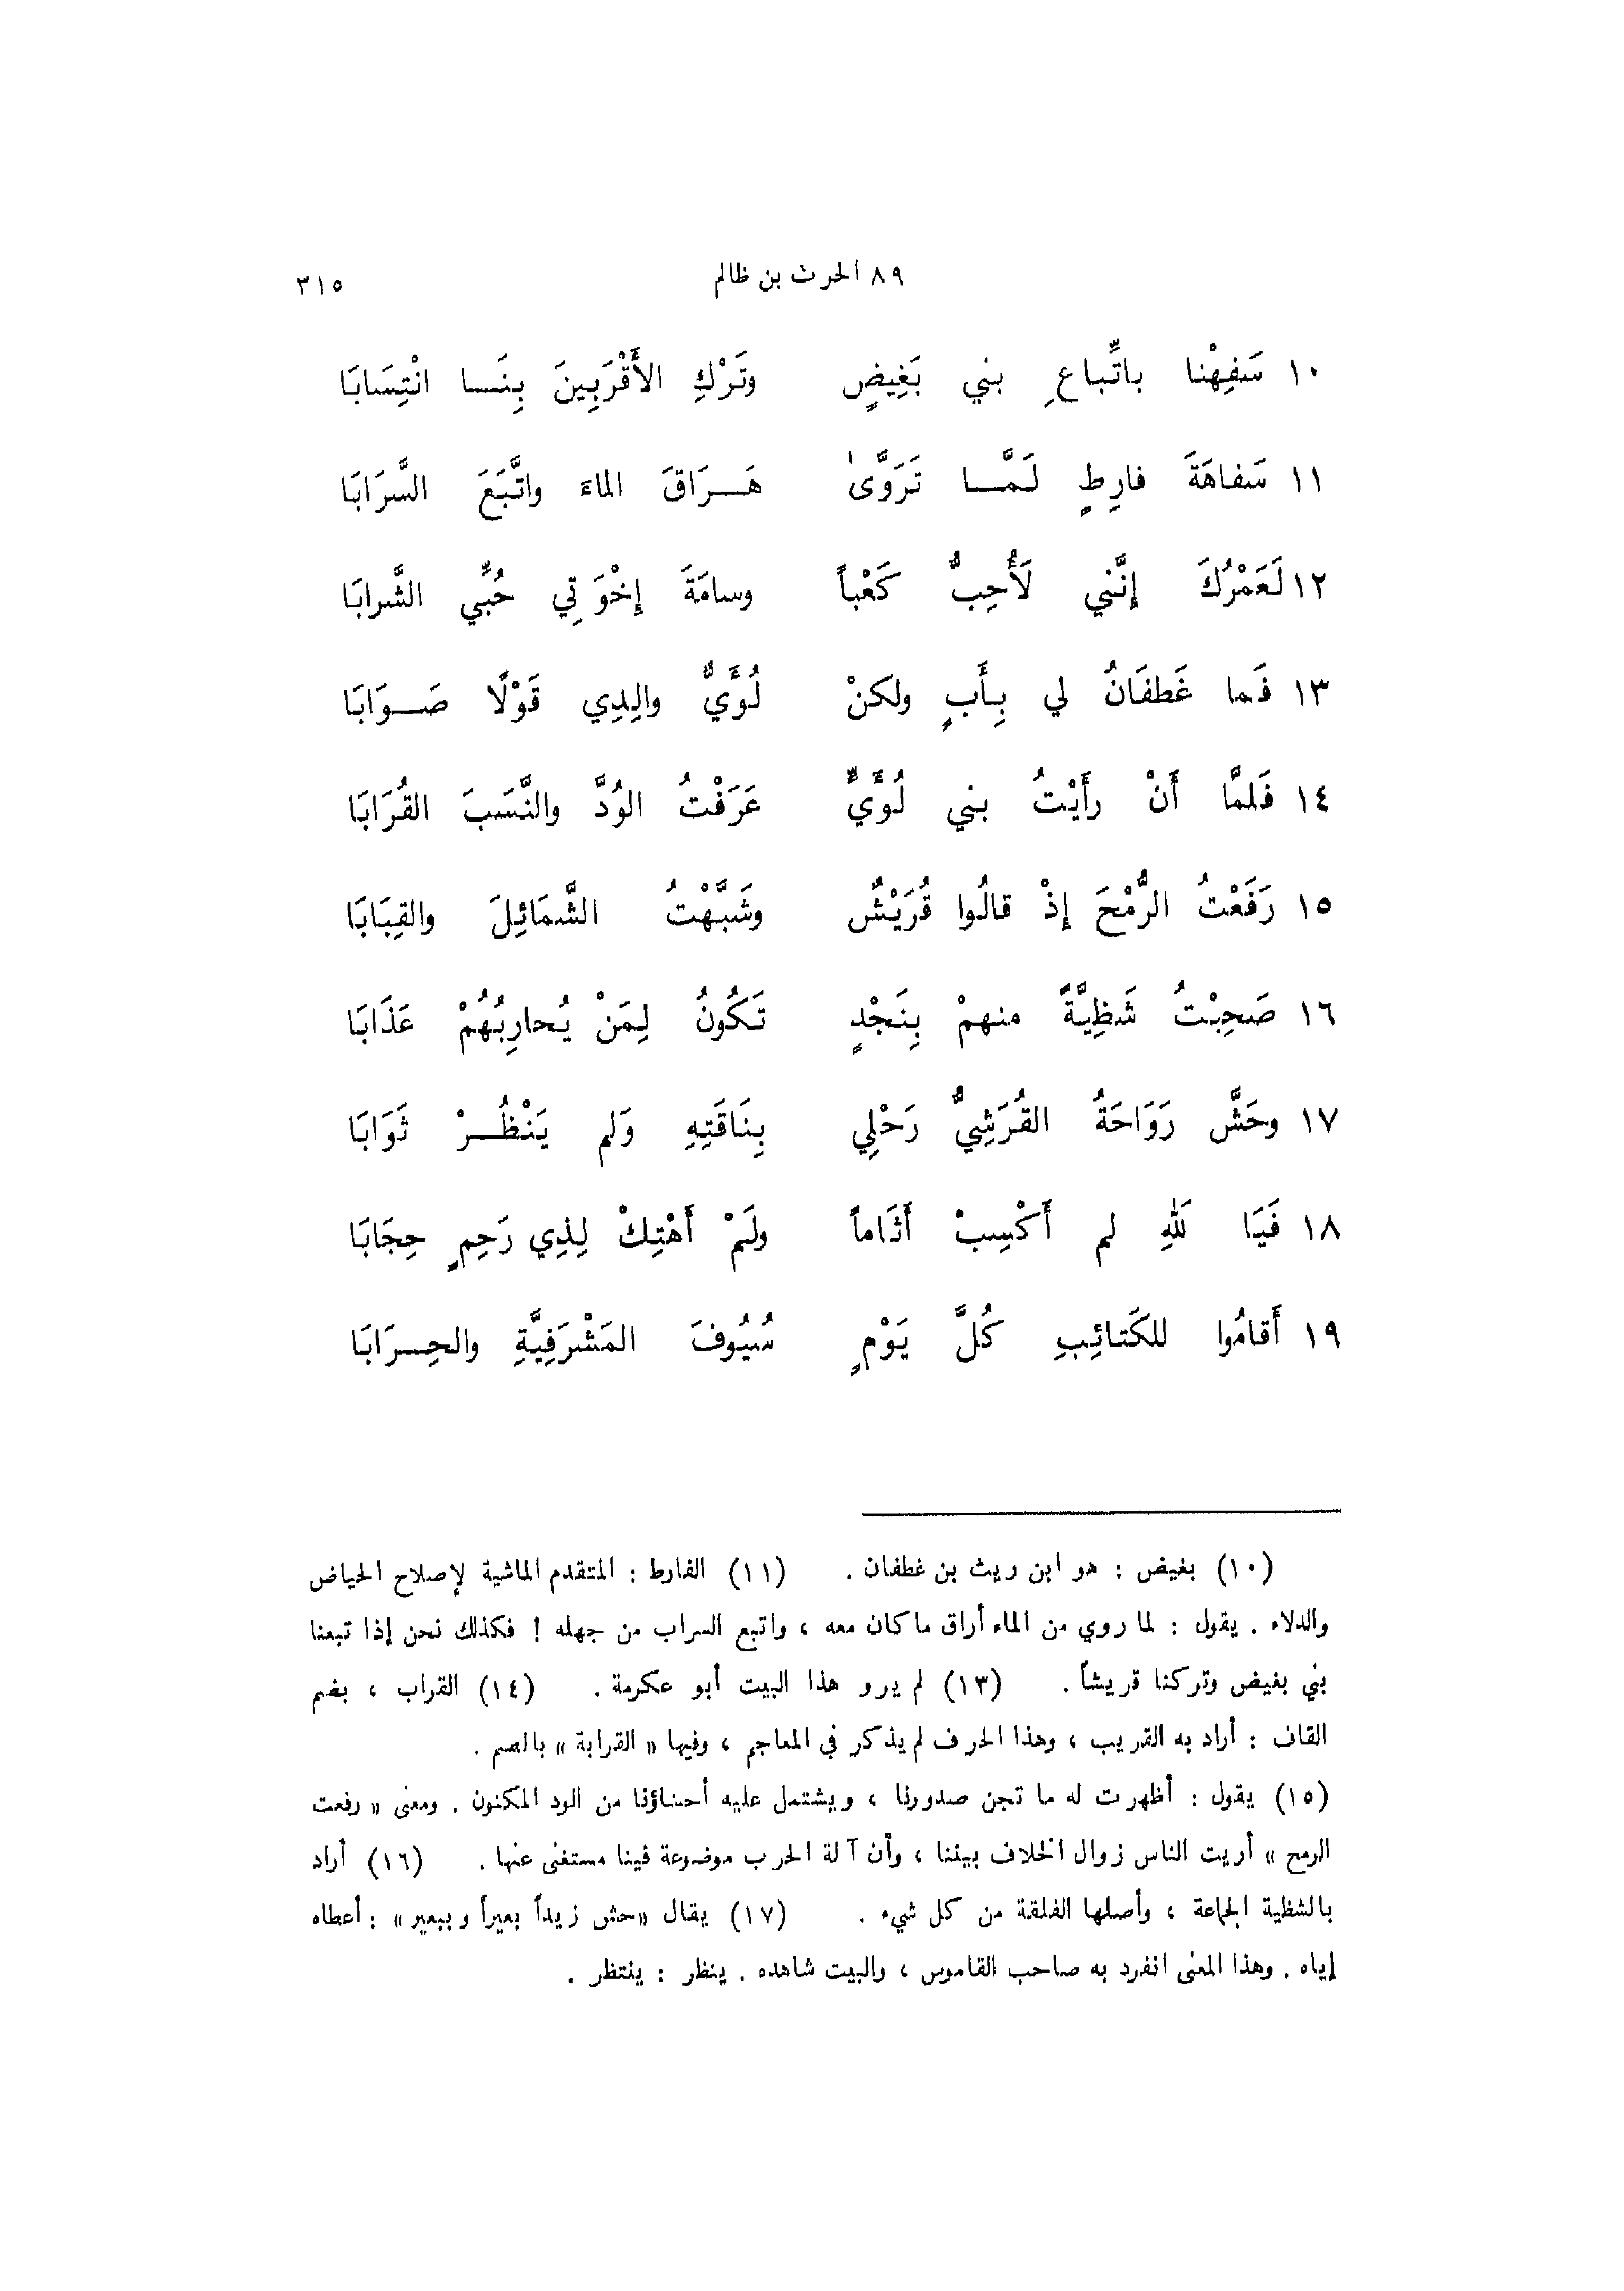 ٨٩ الحرث بن ظالم ٣١٥
١٠ سَفِهْنا باتِّباعِ بني بَغِيضٍ وتَرْكِ الأَقْرَبِينَ بِنَا انْتِسَابَا
١١ سَفاهَةَ فارِطٍ لَمَّا تَرَوَّىٰ هَرَاقَ الماءَ واتَّبَعَ السَّرَابَا
١٢ لَعَمْرُكَ إِنَّني لَأُحِبُّ كَعْباً وسامَةَ إِخْوَتِي حُبِّي الشَّرابَا
١٣ فَما غَطفَانُ لي بِأَبٍ ولكنْ لُؤَيٌّ والِدِي قَوْلًا صَوَابَا
١٤ فَلمَّا أَنْ رأَيْتُ بني لُؤَيٍّ عَرَفْتُ الوُدَّ والنَّسَبَ القُرَابَا
١٥ رَفَعْتُ الرُّمْحَ إِذْ قالُوا قُرَيْشٌ وشَبَّهْتُ الشَّمَائِلَ والقِبَابَا
١٦ صَحِبْتُ شَظِيَّةً منهمْ بِنَجْدٍ تَكُونُ لِمَنْ يُحارِبُهُمْ عَذَابَا
١٧ وحَشَّ رَوَاحَةُ القُرَشِيُّ رَحْلِي بِنَاقَتِهِ وَلم يَنْظُرْ ثَوَابَا
١٨ فَيَا لَلهِ لم أَكْسِبْ أَثَاماً ولَمْ أَهْتِكْ لِذِي رَحِمٍ حِجَابَا
١٩ أَقامُوا للكَتائِبِ كُلَّ يَوْمٍ سُيُوفَ المَشْرَفِيَّةِ والحِرَابَا
(١٠) بغيض : هو ابن ريث بن غطفان . (١١) الفارط : المتقدم الماشية لإصلاح الحياض
والدلاء . يقول : لما روي من الماء أراق ما كان معه ، واتبع السراب من جهله ! فكذلك نحن إذا تبعنا
بني بغيض وتركنا قريشاً . (١٣) لم يرو هذا البيت أبو عكرمة . (١٤) القراب ، بضم
القاف : أراد به القريب ، وهذا الحرف لم يذكر في المعاجم ، وفيها « القرابة » بالضم .
(١٥) يقول : أظهرت له ما تجن صدورنا ، ويشتمل عليه أحناؤنا من الود المكنون . ومعنى « رفعت
الرمح » أريت الناس زوال الخلاف بيننا ، وأن آلة الحرب موضوعة فينا مستغنى عنها . (١٦) أراد
بالشظية الجماعة ، وأصلها الفلقة من كل شيء . (١٧) يقال « حش زيداً بعيراً وببعير » : أعطاه
إياه . وهذا المعنى انفرد به صاحب القاموس ، والبيت شاهده . ينظر : ينتظر .